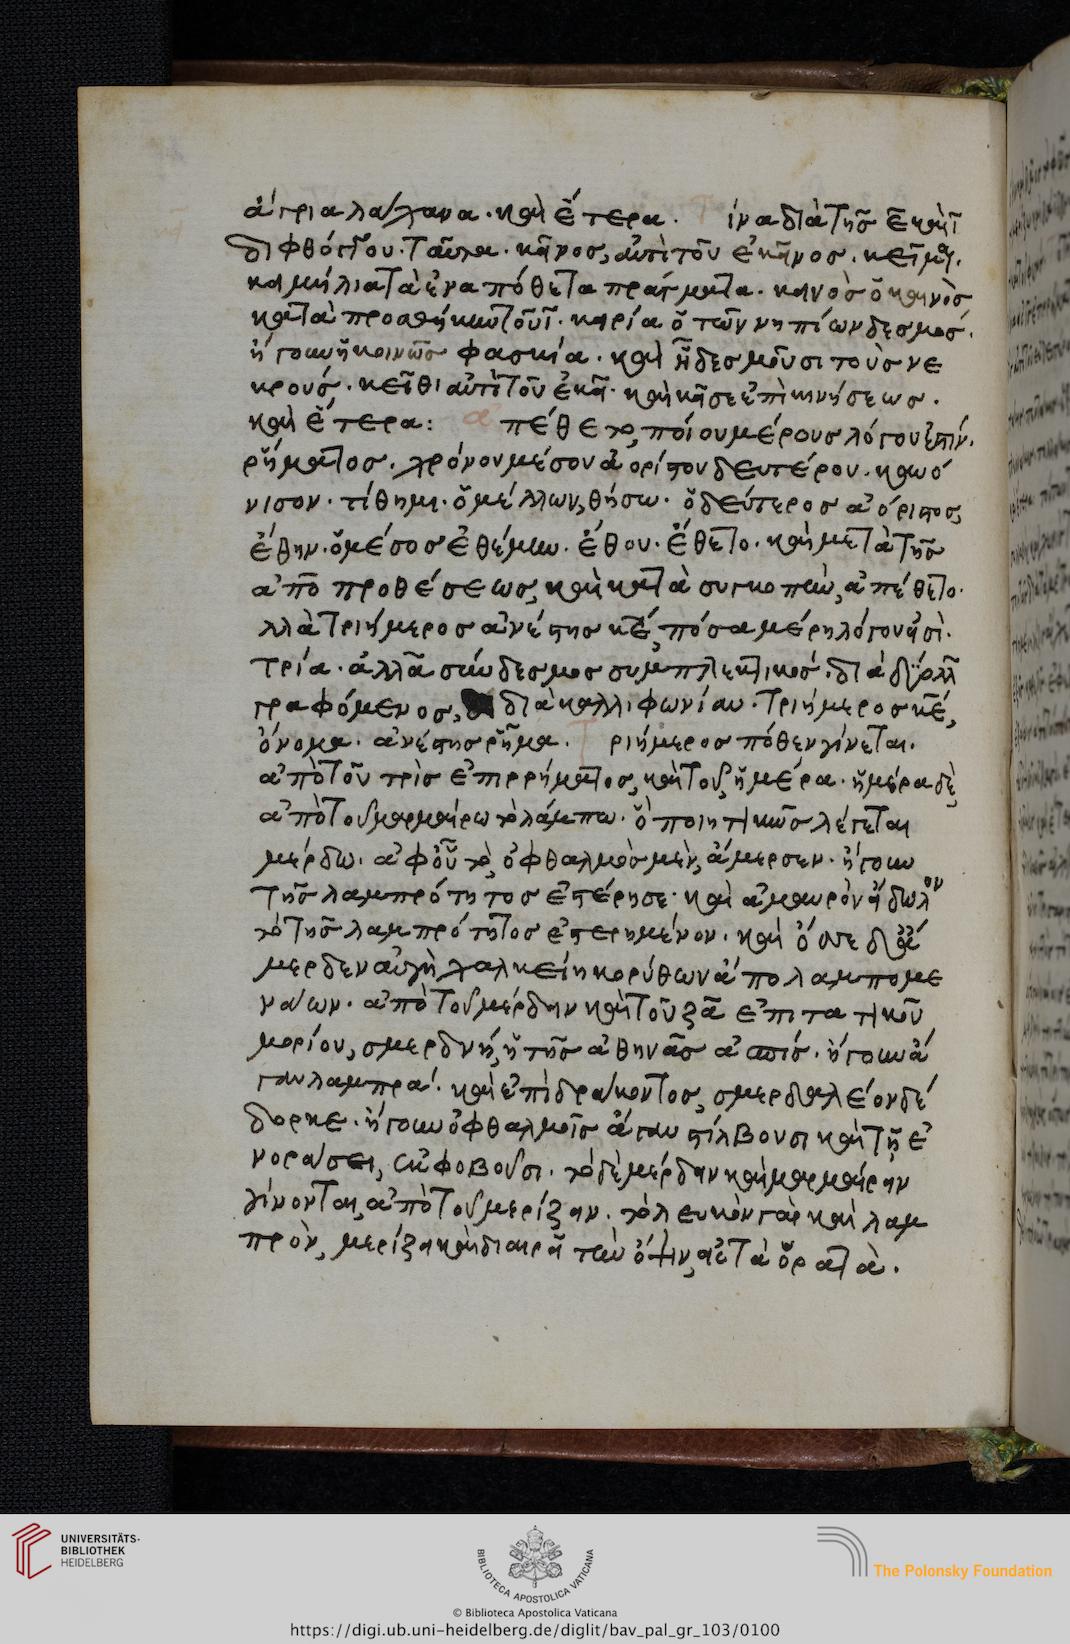 ἄγρια λάχανα · καὶ ἕτερα · τίνα διὰ τῆς ε καὶ ι
διφθόγγου · ταῦτα · κεῖνος, ἀντὶ τοῦ ἐκεῖνος · κεῖμαι ·
κειμήλια τὰ ἐναπόθετα πράγματα · κενὸς ὁ καινὸς
κατὰ προσθήκην τοῦ ι · κειρία ὁ τῶν νηπίων δεσμός ·
ἤγουν ἡ κοινῶς φασκία · καὶ ᾗ δεσμοῦσι τοὺς νε
κρούς · κεῖθι ἀντὶ τοῦ ἐκεῖ · καὶ κεῖσε ἐπὶ κινήσεως ·
καὶ ἕτερα : ἀπέθετο, ποίου μέρους λόγου ἐστίν ·
ῥήματος · χρόνου μέσου ἀορίστου δευτέρου · κανό
νισον · τίθημι · ὁ μέλλων, θήσω · ὁ δεύτερος ἀόριστος,
ἔθην · ὁ μέσος ἐθέμην · ἔθου · ἔθετο · καὶ μετὰ τῆς
ἀπὸ προθέσεως, καὶ κατὰ συγκοπὴν, ἀπέθετο ·
λλὰ τριήμερος ἀνέστης κέ, πόσα μέρη λόγου εἰσὶ ·
τρία · ἀλλὰ σύνδεσμος συμπλεκτικός · διὰ δύο λλ
γραφόμενος, διὰ καλλιφωνίαν · τριήμερος κέ,
ὄνομα · ἀνέστης ῥῆμα · Τριήμερος πόθεν γίνεται ·
ἀπὸ τοῦ τρὶς ἐπιρρήματος, καὶ τοῦ ἡμέρα · ἡμέρα δὲ,
ἀπὸ τοῦ μαρμαίρω τὸ λάμπω · ὃ ποιητικῶς λέγεται
μέρδω · ἀφ' οὗ τὸ, ὀφθαλμὸς μὲν, ἄμερσεν · ἤγουν
τῆς λαμπρότητος ἐστέρησε · καὶ ἀμαυρὸν εἴδωλον
τὸ τῆς λαμπρότητος ἐστερημένον · καὶ ὄσσε δ' ἄ
μερδεν αὐγὴ χαλκείη κορύθων ἄπο λαμπομε
νάων · ἀπὸ τοῦ μέρδειν καὶ τοῦ σα ἐπιτατικοῦ
μορίου, σμερδνή, ἡ τῆς ἀθηνᾶς ἀσπίς · ἤγουν ἄ
γαν λαμπρά · καὶ ἐπὶ δράκοντος, σμερδαλέον δέ
δορκε · ἤγουν ὀφθαλμοῖς ἄγαν στίλβουσι καὶ τῇ ἐ
νοράσει, ἐκφοβοῦσι · τὸ δὲ μέρδειν καὶ μαρμαίρειν
γίνονται, ἀπὸ τοῦ μερίζειν · τὸ λευκὸν γὰρ καὶ λαμ
πρὸν, μερίζει καὶ διαιρεῖ τὴν ὄψιν, εἰς τὰ ὁρατὰ ·
UNIVERSITÄTS-
BIBLIOTHEK
HEIDELBERG
BIBLIOTECA APOSTOLICA VATICANA
The Polonsky Foundation
© Biblioteca Apostolica Vaticana
https://digi.ub.uni-heidelberg.de/diglit/bav_pal_gr_103/0100